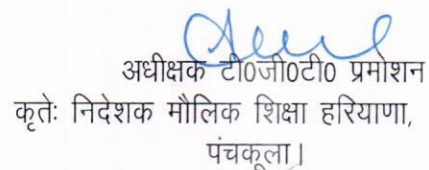 अधीक्षक टी0जी0टी0 प्रमोशन
कृतेः निदेशक मौलिक शिक्षा हरियाणा,
पंचकूला।